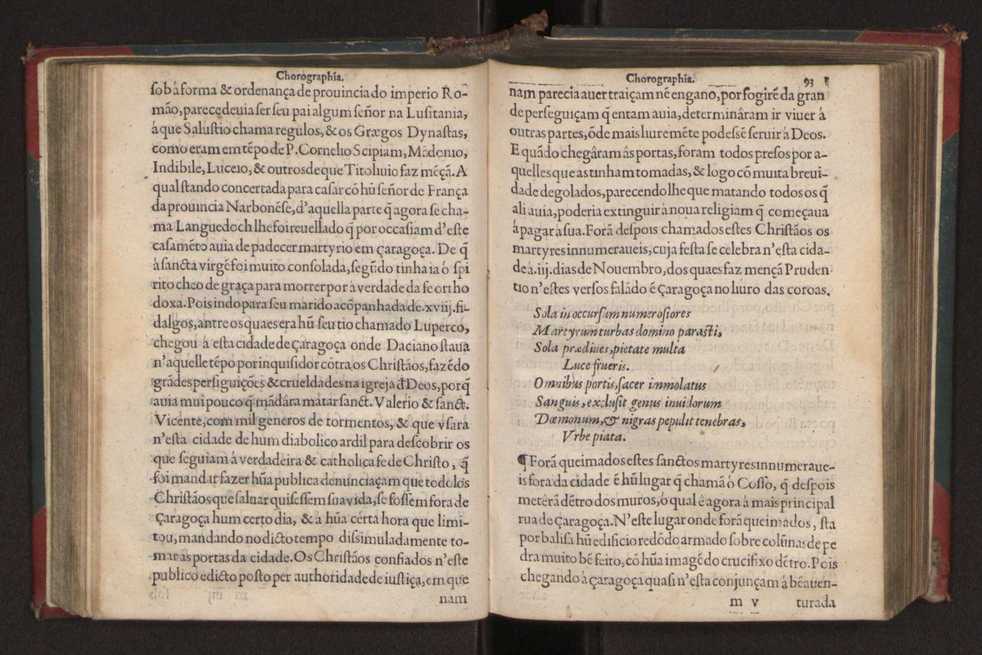 Chorographia.
sob à forma & ordenança de prouincia do imperio Ro-
mão, parece deuia ser seu pai algum señor na Lusitania,
à que Salustio chama regulos, & os Græ̨gos Dynastas,
como eram em tẽpo de P. Cornelio Scipiam, Mãdonio,
Indibile, Luceio, & outros de que Titoliuio faz mẽçã. A
qual stando concertada para casar cõ hũ señor de França
da prouincia Narbonẽse, d'aquella parte q̃ agora se cha-
ma Languedoch lhe foi reuellado q̃ por occasiam d'este
casamẽto auia de padecer martyrio em çaragoça. De q̃
à sancta virgẽ foi muito consolada, segũdo tinha ia o spi
rito cheo de graça para morrer por à verdade da fe ortho
doxa. Pois indo para seu marido acõpanhada de .xviij. fi-
dalgos, antre os quaes era hũ seu tio chamado Luperco,
chegou à esta cidade de çaragoça onde Daciano staua
n'aquelle tẽpo por inquisidor cõtra os Christãos, fazẽdo
grãdes persiguições & crueldades na igreja d'Deos, porq̃
auia mui pouco q̃ mãdára matar sanct. Valerio & sanct.
Vicente, com mil generos de tormentos, & que vsara
n'esta cidade de hum diabolico ardil para descobrir os
que seguiam à verdadeira & catholica fe de Christo, q̃
foi mandar fazer hũa publica denunciaçam que todolos
Christãos que saluar quisessem sua vida, se fossem fora de
çaragoça hum certo dia, & à hũa certa hora que limi-
tou, mandando no dicto tempo dissimuladamente to-
mar as portas da cidade. Os Christãos confiados n'este
publico edicto posto per authoridade de iustiça, em que
nam
Chorographia. 93
nam parecia auer traiçam nẽ engano, por fogirẽ da gran
de perseguiçam q̃ entam auia, determináram ir viuer à
outras partes, õde mais liuremẽte podessẽ seruir à Deos.
E quãdo chegâram âs portas, foram todos presos por a-
quelles que as tinham tomadas, & logo cõ muita breui-
dade degolados, parecendolhe que matando todos os q̃
ali auia, poderia extinguir à noua religiam q̃ começaua
à pagar à sua. Forã despois chamados estes Christãos os
martyres innumeraueis, cuja festa se celebra n'esta cida-
de à .iij. dias de Nouembro, dos quaes faz mençã Pruden
tio n'estes versos falãdo ẽ Çaragoça no liuro das coroas.
Sola in occursum numerosiores
Martyrum turbas domino parasti,
Sola prædiues, pietate multa
Luce frueris.
Omnibus portis, sacer immolatus
Sanguis, exclusit genus inuidorum
Dæmonum, & nigras pepulit tenebras,
Vrbe piata.
¶ Forã queimados estes sanctos martyres innumeraue-
is fora da cidade ẽ hũ lugar q̃ chamã o Cosso, q̃ despois
meterã dẽtro dos muros, o qual é agora à mais principal
rua de çaragoça. N'este lugar onde forã queimados, sta
por balisa hũ edificio redõdo armado sobre colũnas de pe
dra muito bẽ feito, cõ hũa imagẽ do crucifixo dẽtro. Pois
chegando à çaragoça quasi n'esta conjunçam à bẽauen-
m v turada